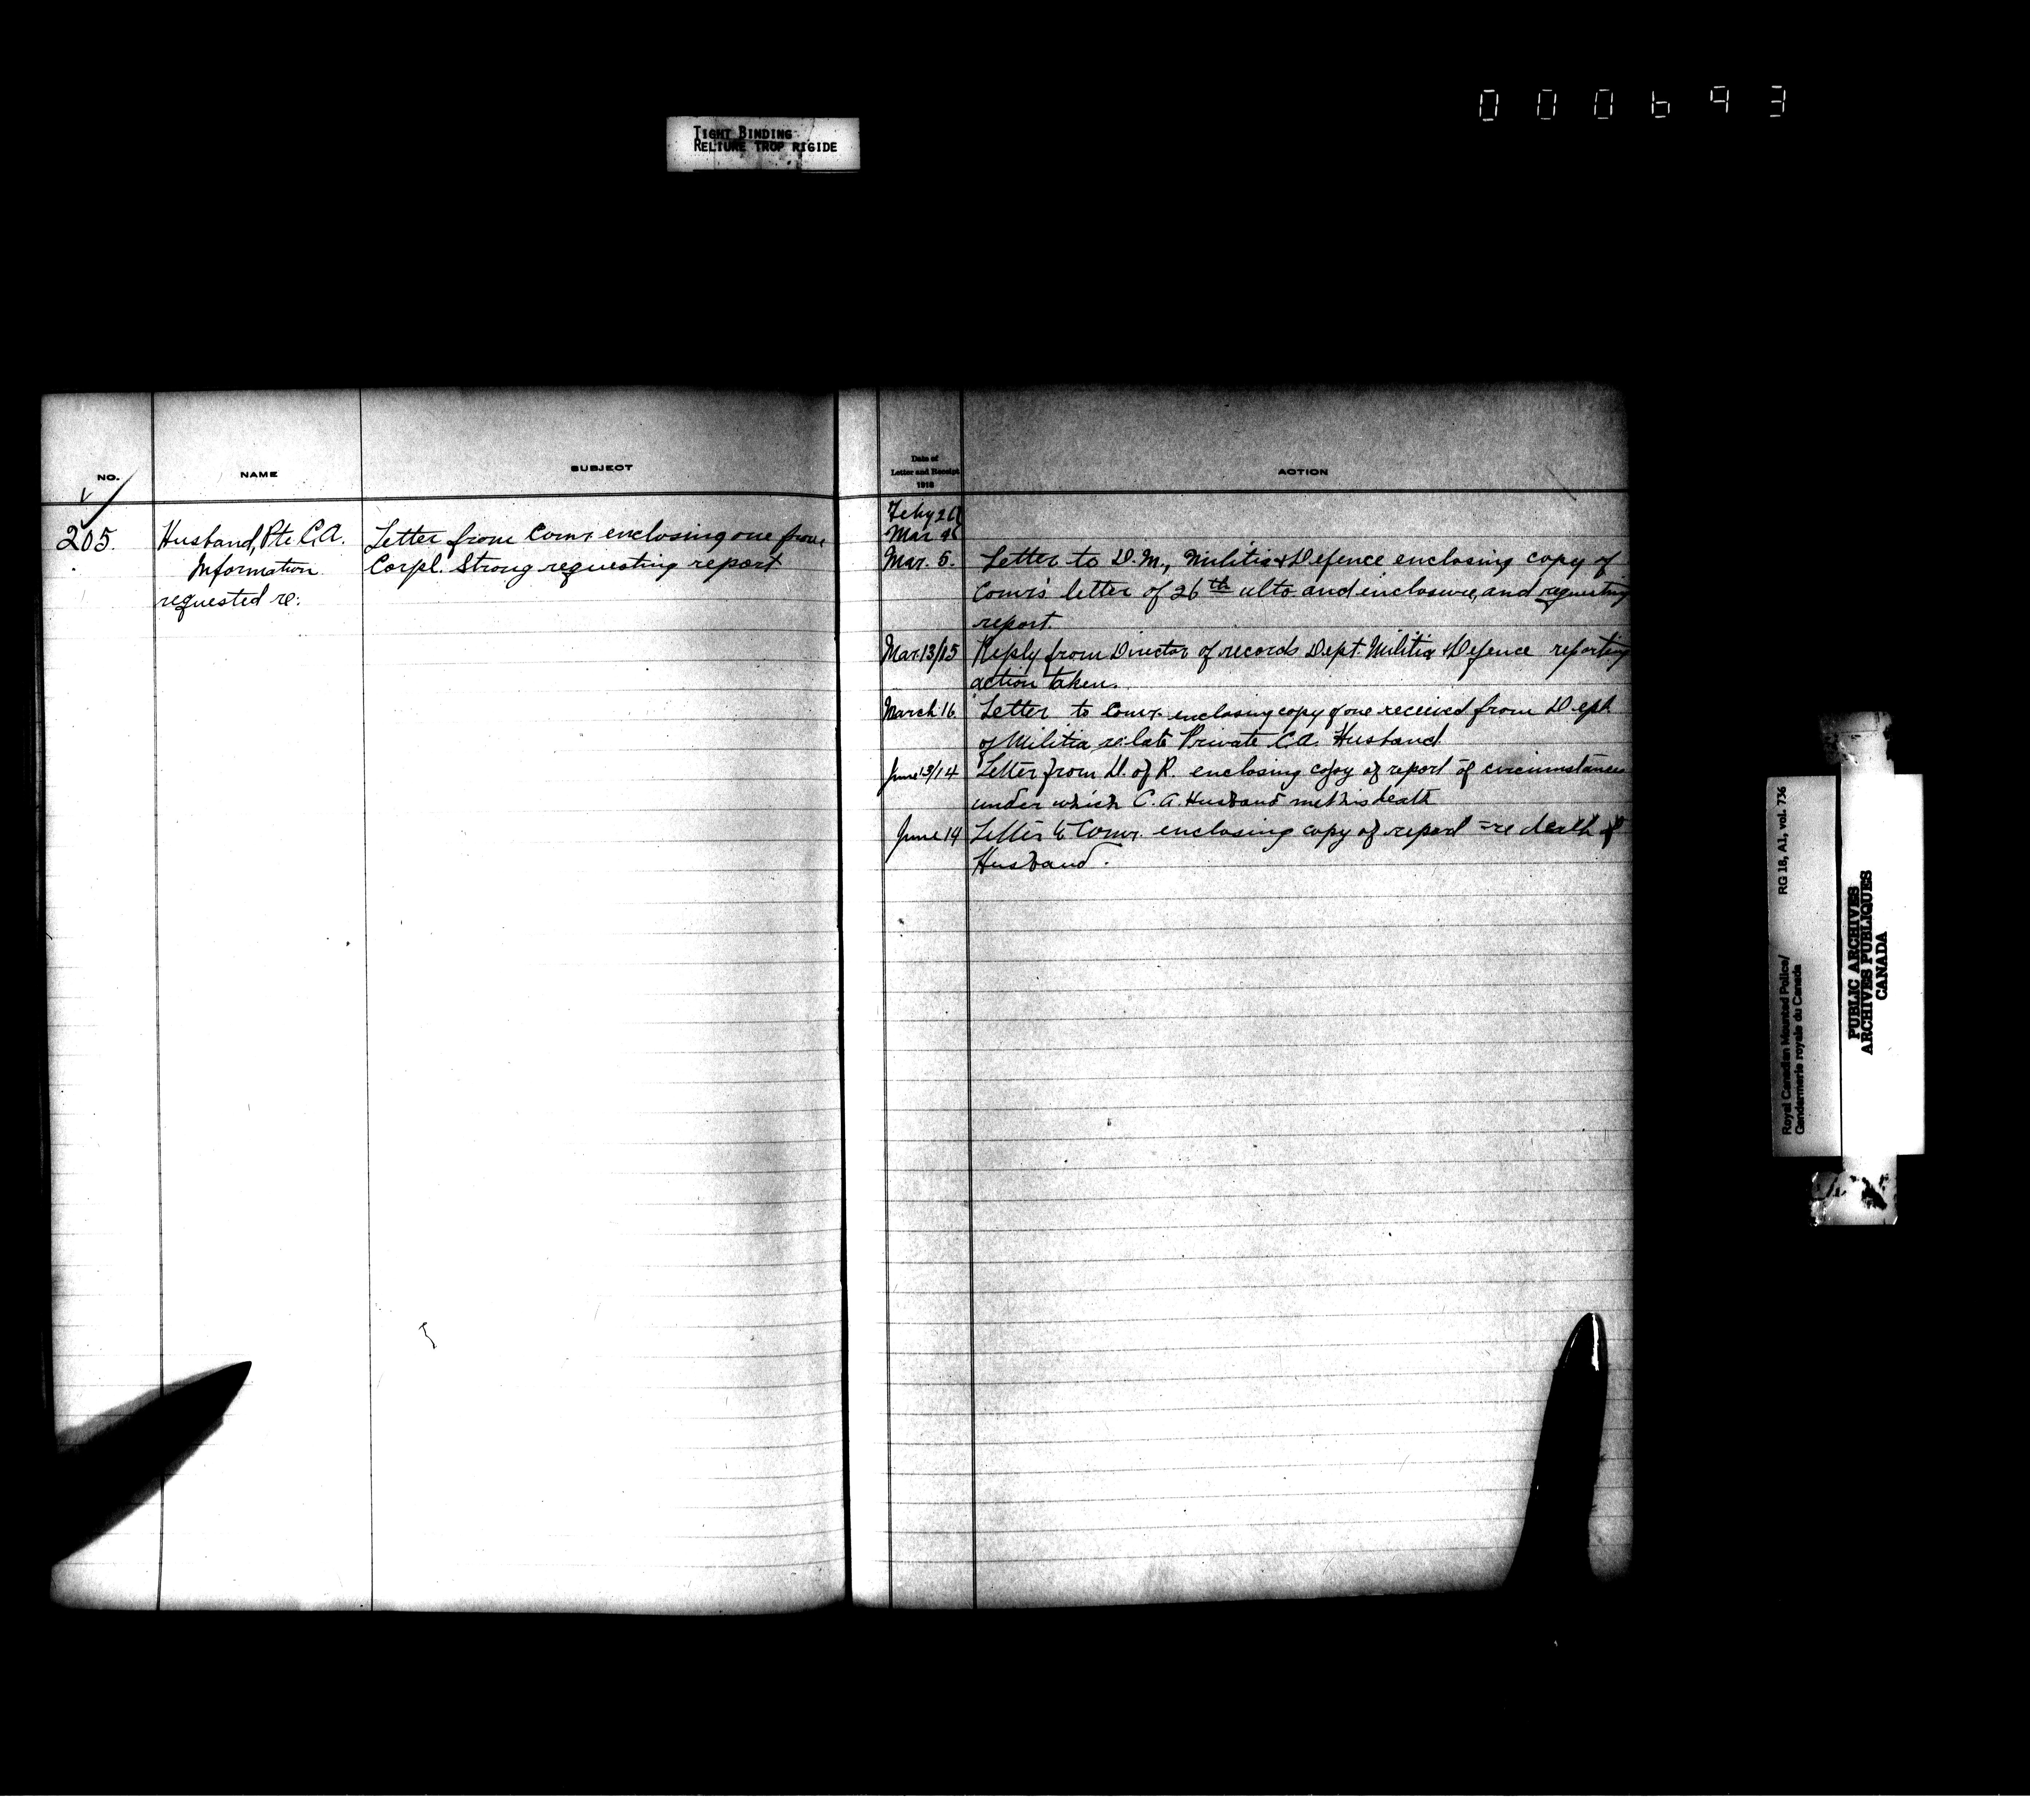 000693
TIGHT BINDING
RELIURE TROP RIGIDE
NO.
NAME
SUBJECT
Date of
Letter and Receipt
1918
ACTION
205.
Husband, Pte C.A.
Information
requested re:
Letter from Comr enclosing one from
Corpl. Strong requesting report
Feby 26
Mar 4
Mar. 5. Letter to D.M., Militia & Defence enclosing copy of
Comr's letter of 26th ulto and inclosure, and requesting
report.
Mar. 13/15 Reply from Director of records Dept. Militia & Defence reporting
action taken.
March 16 Letter to Comr. enclosing copy of one received from Dept
of Militia re late Private C.A. Husband
June 13/14 Letter from D. of R. enclosing copy of report of circumstances
under which C.A. Husband met his death
June 14 Letter to Comr. enclosing copy of report =re death of
Husband.
Royal Canadian Mounted Police/
Gendarmerie royale du Canada
RG 18, A1, vol. 736
PUBLIC ARCHIVES
ARCHIVES PUBLIQUES
CANADA